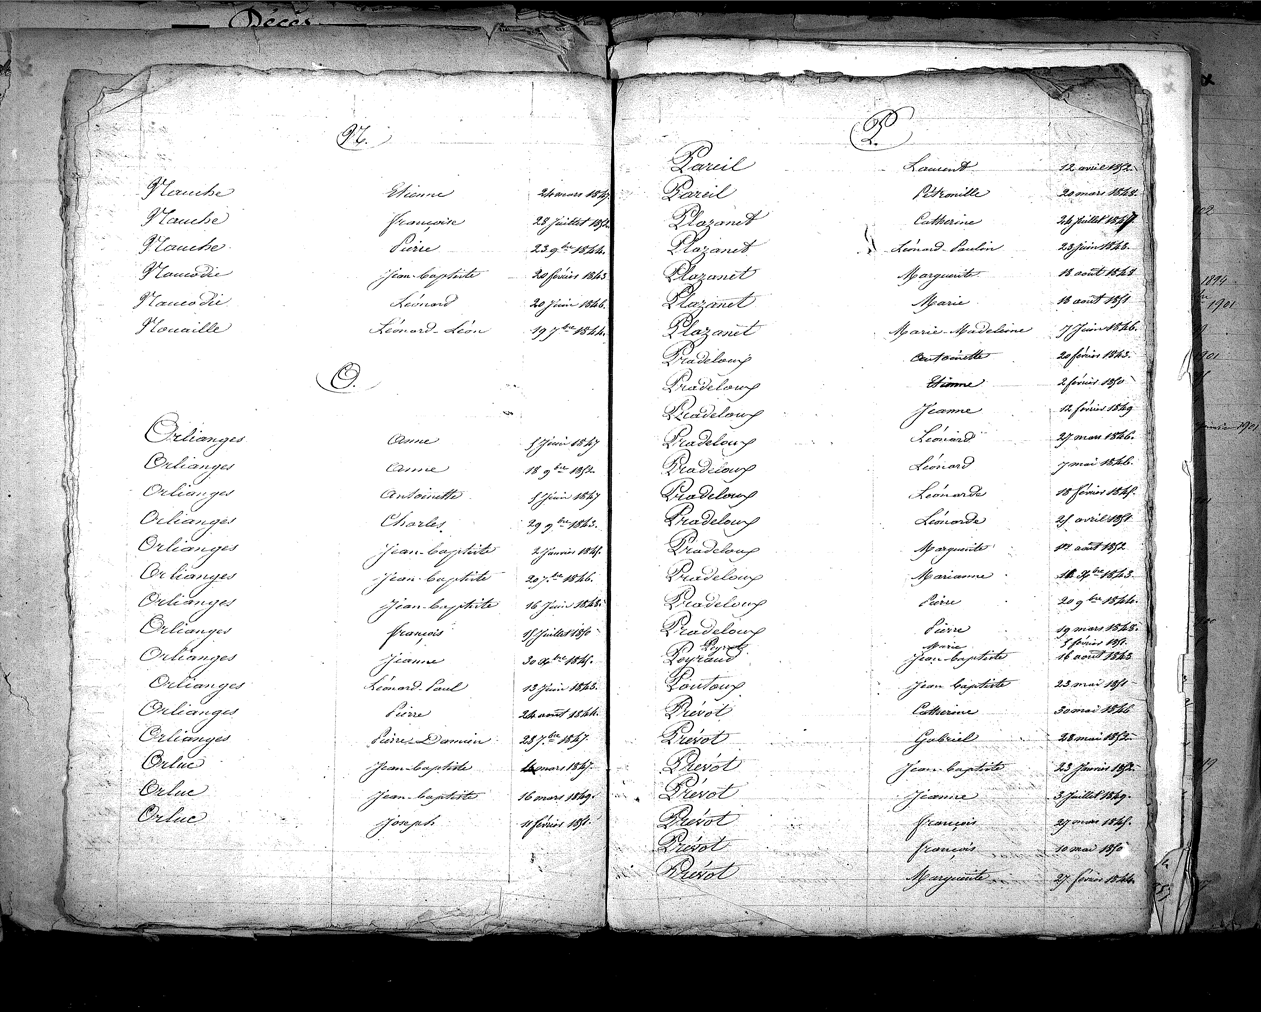 Décès
N.
Nauche Etienne 24 mars 1847
Nauche françoise 22 Juillet 1852
Nauche Pierre 23 9bre 1844.
Naucodie Jean-baptiste 20 février 1843
Naucodie Léonard 20 Juin 1846.
Nouaille Léonard-Léon 19 7bre 1844.
O.
Orlianges anne 5 février 1847
Orlianges anne 18 9bre 1852.
Orlianges antoinette 5 Juin 1847
Orlianges Charles 29 9bre 1843.
Orlianges Jean-baptiste 2 Janvier 1845.
Orlianges Jean-baptiste 20 7bre 1846.
Orlianges Jean-baptiste 16 Juin 1848.
Orlianges françois 15 Juillet 1850
Orlianges Jeanne 30 Xbre 1845.
Orlianges Léonard-Paul 13 Juin 1843.
Orlianges Pierre 24 août 1844.
Orlianges Pierre-Damien 28 7bre 1847.
Orluc Jean-baptiste mars 1847.
Orluc Jean-baptiste 16 mars 1849.
Orluc Joseph 11 février 1851.
P.
Pareil Laurent 12 avril 1852.
Pareil Pétronille 20 mars 1848.
Plazanet Catherine 24 Juillet 1847
Plazanet Léonard Paulin 23 Juin 1843.
Plazanet Marguerite 18 août 1848
Plazanet Marie 18 août 1851
Plazanet Marie-Madeleine 7 Juin 1846.
Pradeloux antoinette 20 février 1843.
Pradeloux Etienne 2 février 1850
Pradeloux Jeanne 12 février 1849
Pradeloux Léonard 27 mars 1846.
Pradeloux Léonard 7 mai 1846.
Pradeloux Léonarde 18 février 1845.
Pradeloux Léonarde 25 avril 1851
Pradeloux Marguerite août 1852
Pradeloux Marianne Xbre 1843.
Pradeloux Pierre 20 9bre 1844.
Pradeloux Pierre 19 mars 1848.
Peyrat Marie 5 février 1851.
Peyraud Jean-baptiste 16 août 1843
Pontoux Jean-baptiste 23 mai 1851
Prévôt Catherine 30 mai 1846
Prévôt Gabriel 28 mai 1852
Prévôt Jean-baptiste 23 Janvier 1852.
Prévôt Jeanne 3 Juillet 1849.
Prévôt françois 27 mars 1845.
Prévôt françois 10 mai 1850
Prévôt Marguerite 27 février 1844.